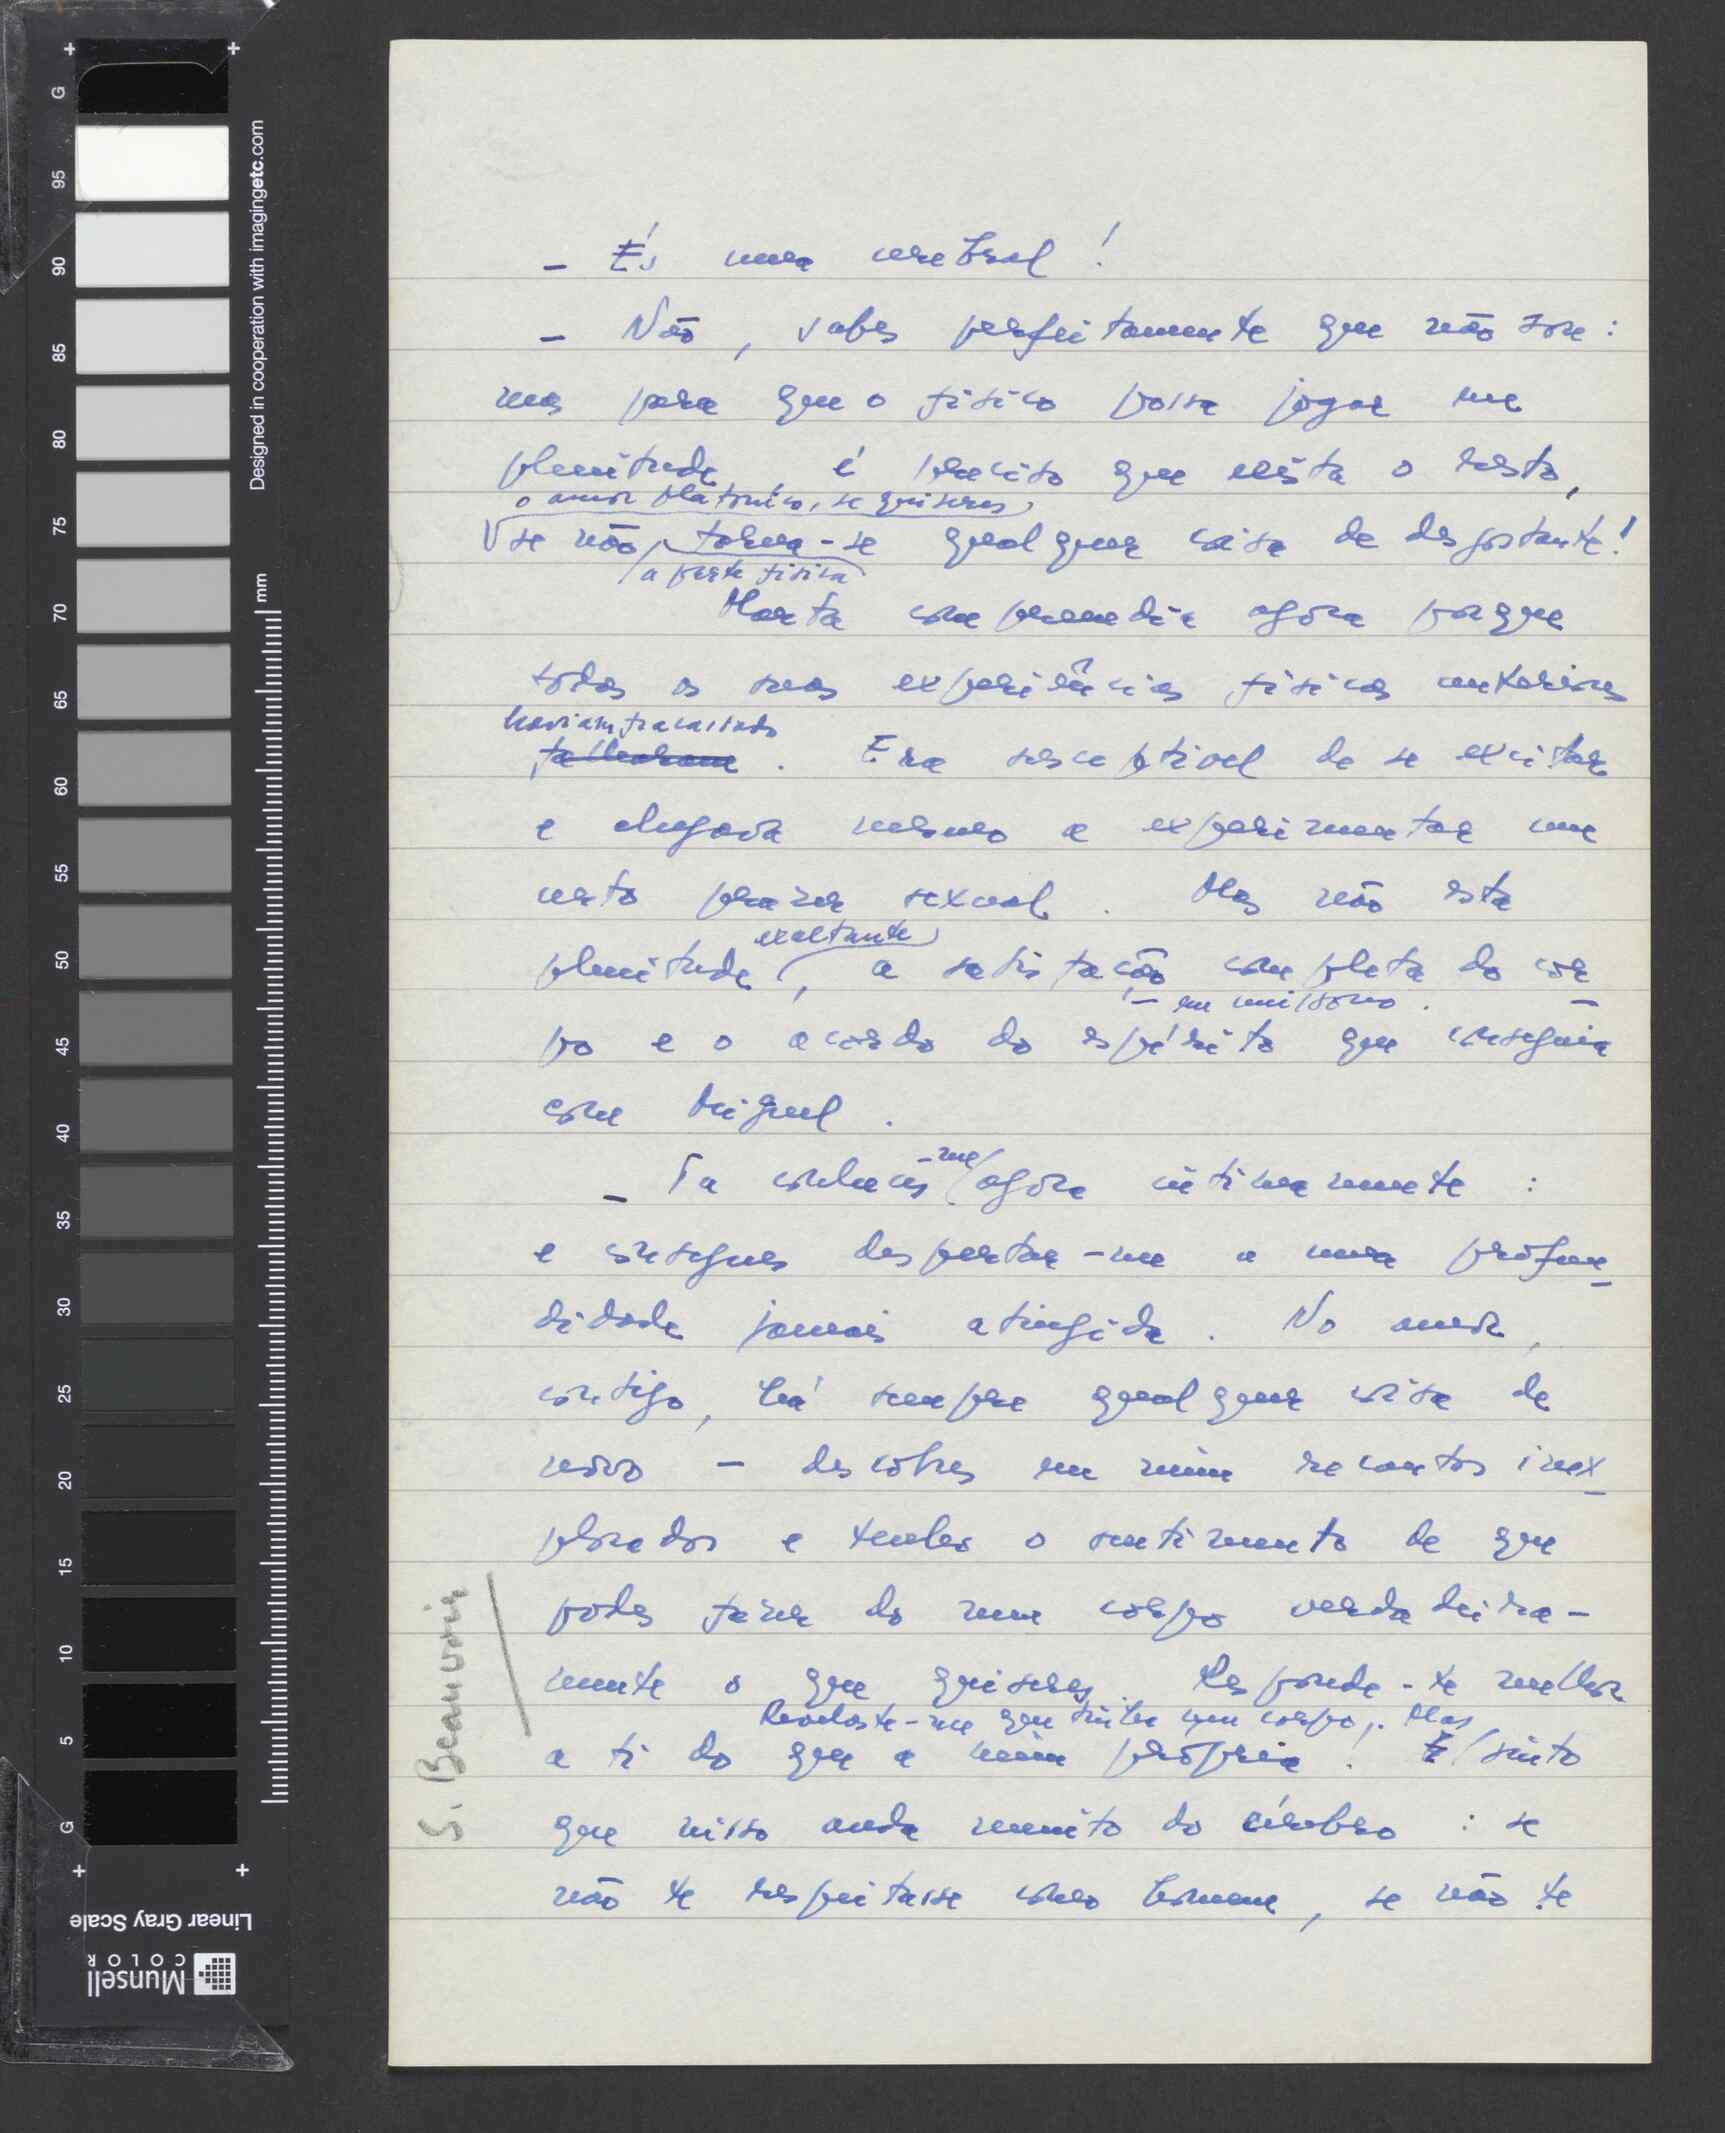 – És uma cerebral!
– Não, sabes perfeitamente que não sou:
mas para que o físico possa jogar em
plenitude é preciso que exista o resto,
o amor platónico, se quiseres,
se não, torna-se qualquer coisa de desgostante!
a parte física
Marta compreendia agora porque
todas as suas experiências físicas anteriores
haviam fracassado
falharam. Era susceptível de se excitar
e chegava mesmo a experimentar um
certo prazer sexual. Mas não esta
exaltante
plenitude, a satisfação completa do cor-
– em uníssono.
po e o acordo do espírito que conseguia
com Miguel.
-me
– Tu conheces agora intimamente:
e consegues despertar-me a uma profun-
didade jamais atingida. No amor,
contigo, há sempre qualquer coisa de
novo – descobres em mim recantos inex-
plorados e tenho o sentimento de que
podes fazer do meu corpo verdadeira-
mente o que quiseres. Responde-te melhor
Revelaste-me que tinha um corpo. Mas
a ti do que a mim própria! E sinto
que nisso anda muito do cérebro: se
não te respeitasse como homem, se não te
S. Beauvoir
Designed in cooperation with imagingetc.com
mm
G
95
90
85
80
75
70
65
60
55
50
45
40
35
30
25
20
15
10
5
G
Linear Gray Scale
Munsell
COLOR